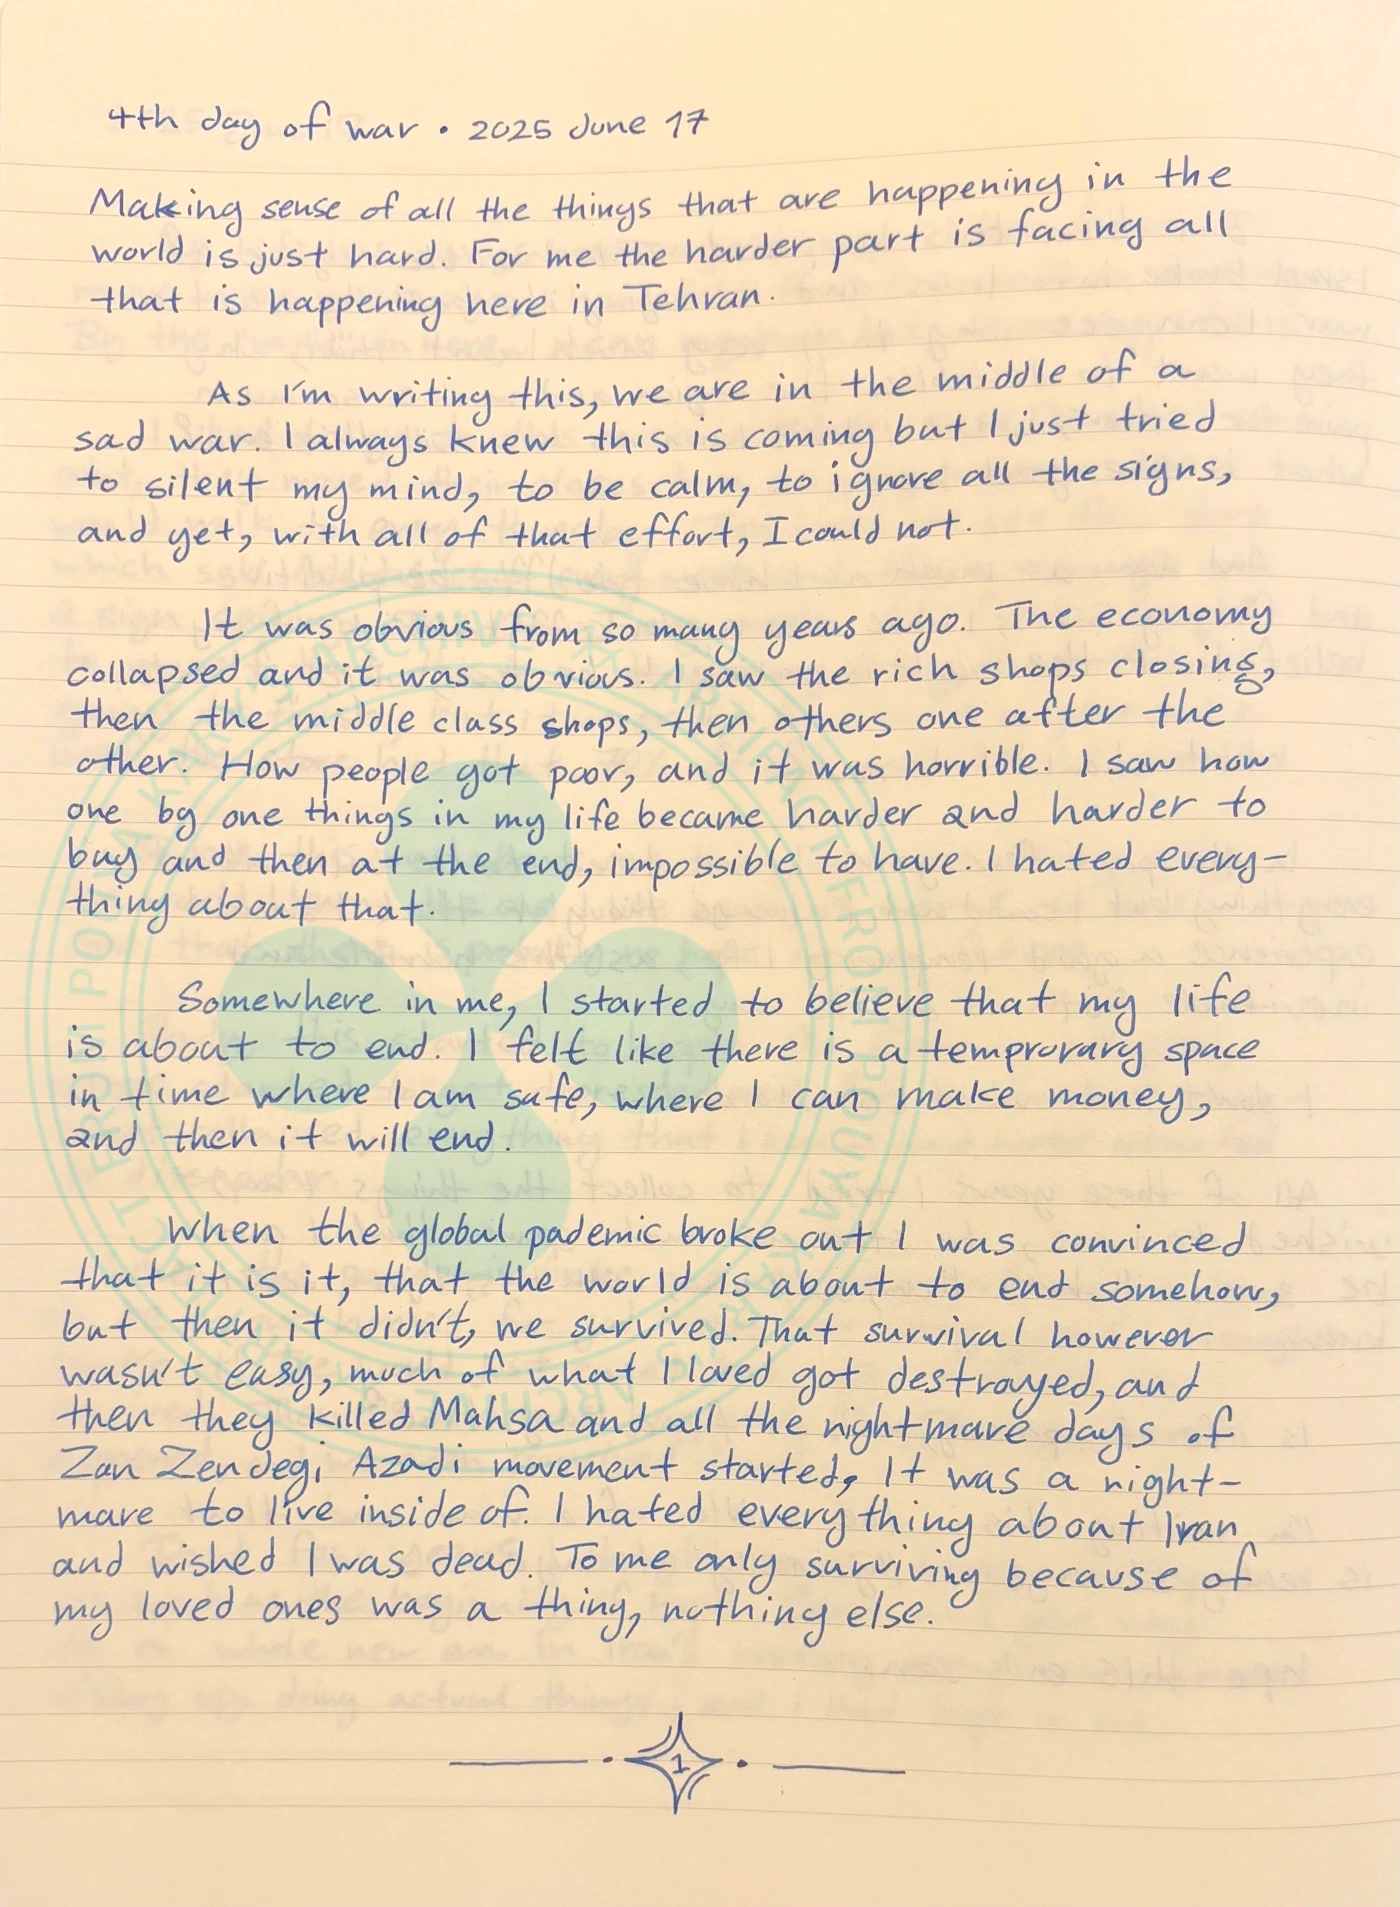 4th day of war • 2025 June 17
Making sense of all the things that are happening in the
world is just hard. For me the harder part is facing all
that is happening here in Tehran.
As I'm writing this, we are in the middle of a
sad war. I always knew this is coming but I just tried
to silent my mind, to be calm, to ignore all the signs,
and yet, with all of that effort, I could not.
It was obvious from so many years ago. The economy
collapsed and it was obvious. I saw the rich shops closing,
then the middle class shops, then others one after the
other. How people got poor, and it was horrible. I saw how
one by one things in my life became harder and harder to
buy and then at the end, impossible to have. I hated every-
thing about that.
Somewhere in me, I started to believe that my life
is about to end. I felt like there is a temprorary space
in time where I am safe, where I can make money,
and then it will end.
When the global pademic broke out I was convinced
that it is it, that the world is about to end somehow,
but then it didn't, we survived. That survival however
wasn't easy, much of what I loved got destroyed, and
then they killed Mahsa and all the nightmare days of
Zan Zendegi Azadi movement started, It was a night-
mare to live inside of. I hated everything about Iran
and wished I was dead. To me only surviving because of
my loved ones was a thing, nothing else.
1